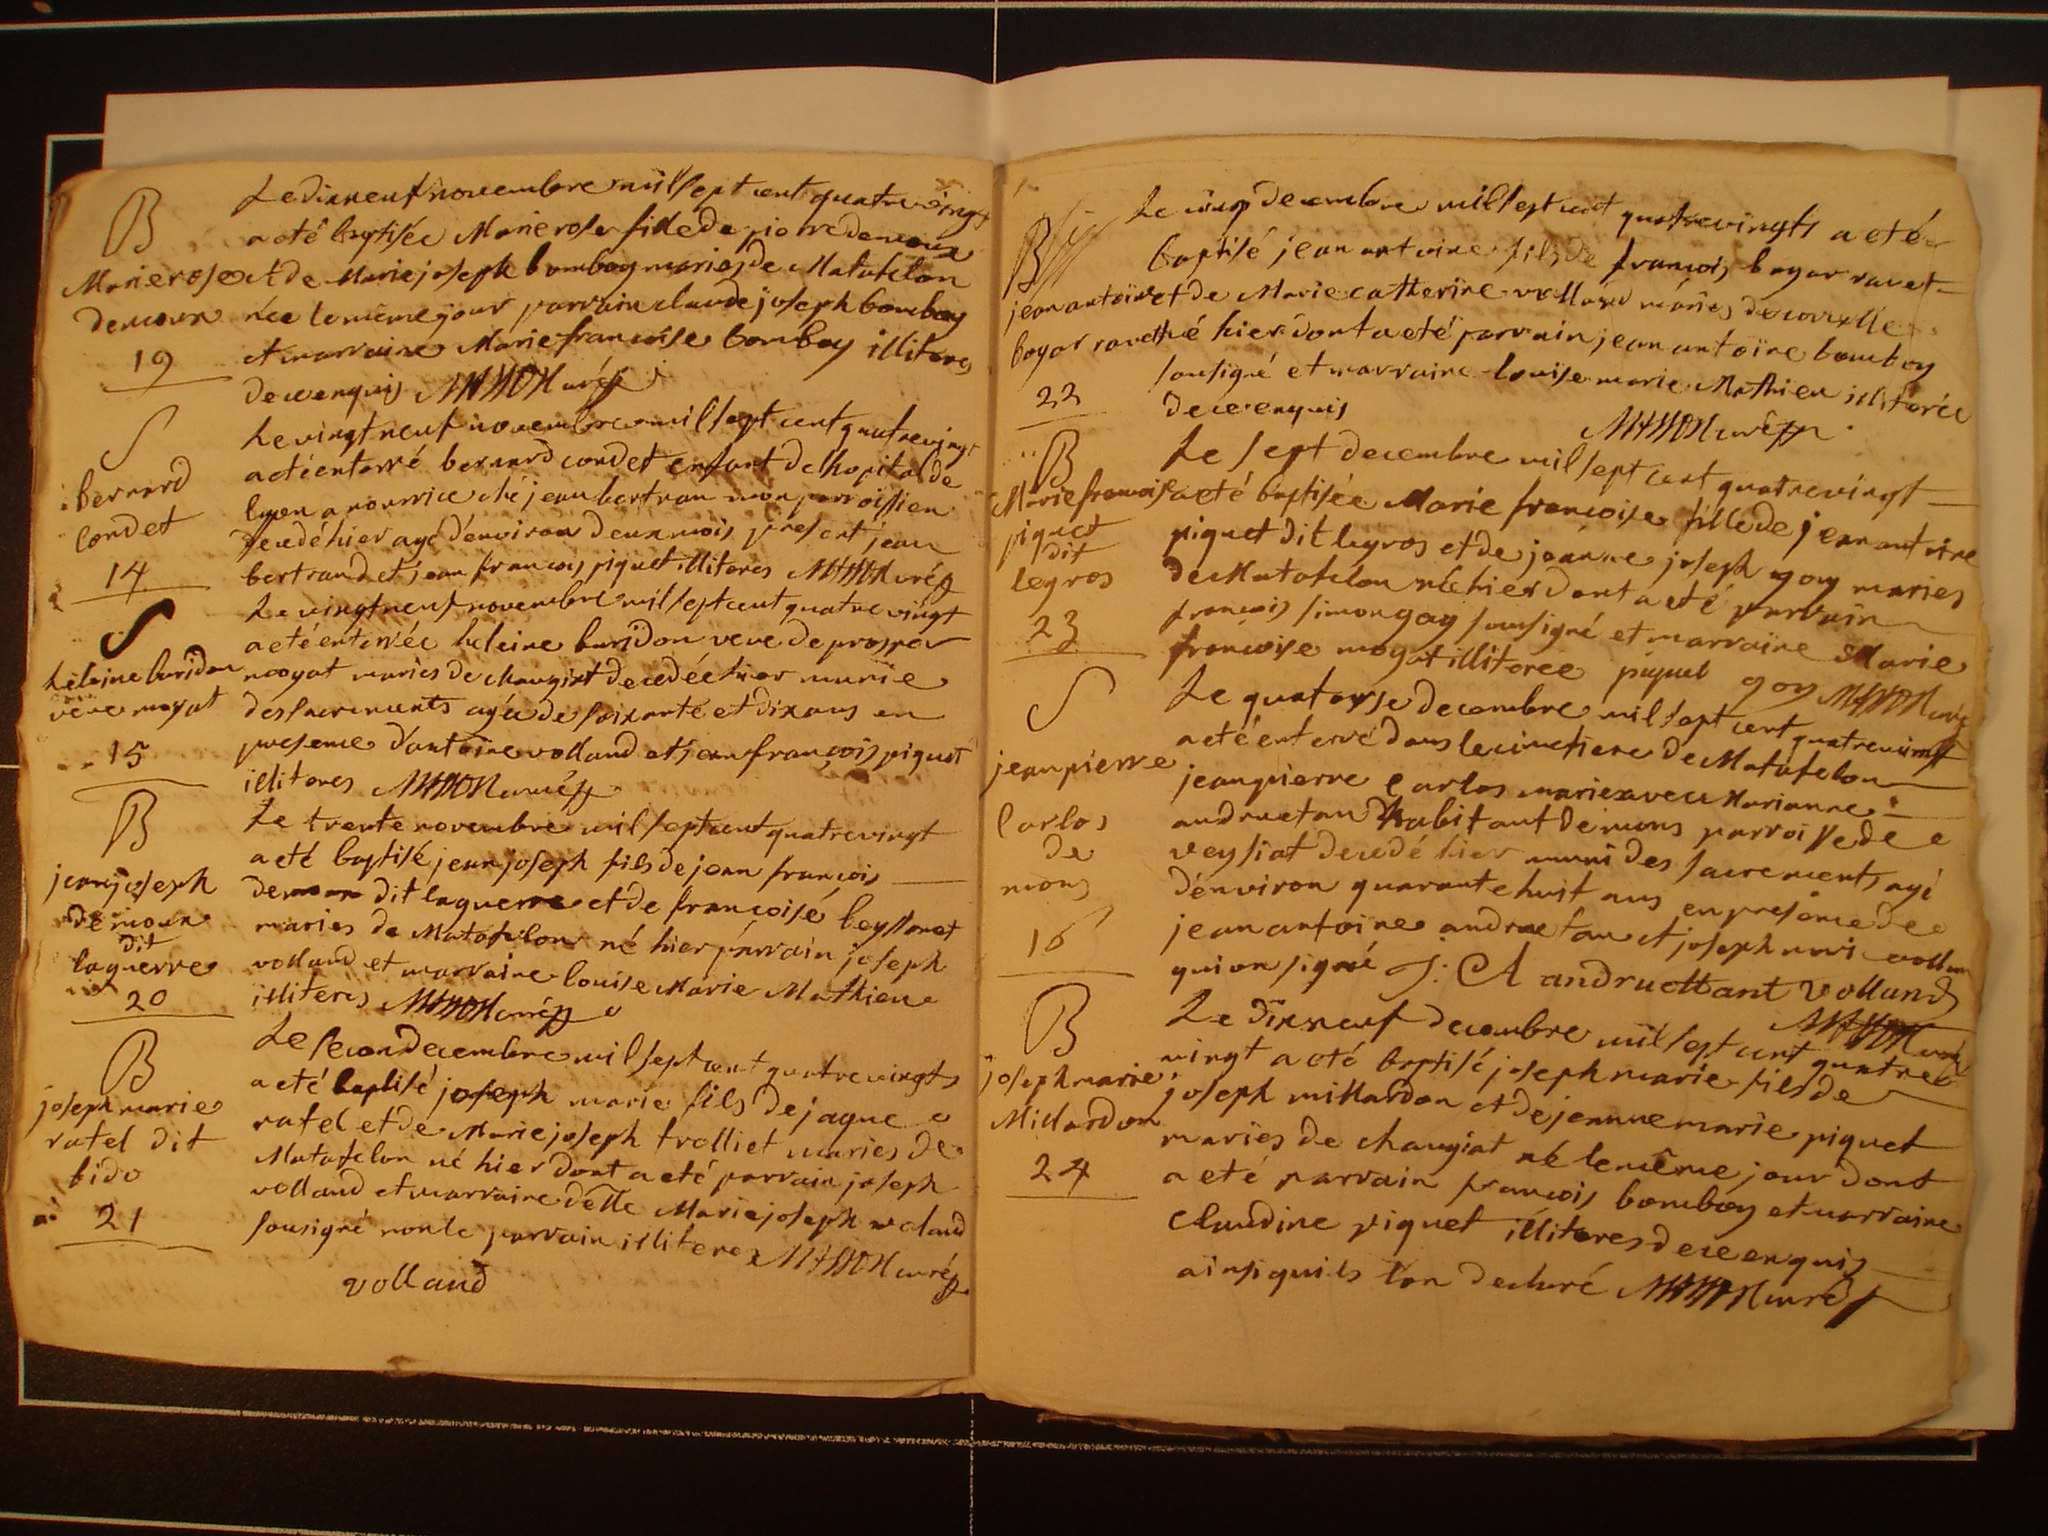 B
Marie rose
demoux
19
Le dixneuf novembre mil sept cent quatre vingt
a eté baptisée Marie rose fille de pierre demoux
et de Marie joseph bomboy mariés de Matafelon
née le même jour parrain claude joseph bomboy
et marraine Marie françoise bomboy illiteres
de ce enquis MASSON curé
S
bernard
condet
14
Le vingt neuf novembre mil sept cent quatre vingt
a eté enterré bernard condet enfant de lhopital de
lyon a nourrice ché jean bertran mon parroissien
decedé hier agé d'environ deux mois present jean
bertrand et jean françois piquet illiteres MASSON curé
S
heleine buridon
veve moyat
15
Le vingt neuf novembre mil sept cent quatre vingt
a eté enterrée heleine buridon veve de prosper
moyat mariés de changiat decedée hier munie
des sacrements agée de soixante et dix ans en
presence d'antoine volland et jean françois piquet
illiteres MASSON curé
B
jean joseph
demoux
dit
laguerre
20
Le trente novembre mil sept cent quatre vingt
a eté baptisé jean joseph fils de jean françois
demoux dit laguerre et de françoise beyssonet
maries de Matafelon né hier parrain joseph
volland et marraine louise Marie Mathieu
illiteres MASSON curé
B
joseph marie
ratel dit
bido
21
Le second decembre mil sept cent quatre vingts
a eté baptisé joseph marie fils de jaque
ratel et de Marie joseph trolliet maries de
Matafelon né hier dont a eté parrain joseph
volland et marraine delle Marie joseph voland
sousigné non le parrain illitere MASSON curé
volland
B
jean antoine
boyar ravet
22
Le cinq decembre mil sept cent quatre vingts a eté
baptisé jean antoine fils de françois boyar ravet
et de Marie catherine volland mariés de corcelle
né hier dont a eté parrain jean antoine bomboy
sousigné et marraine louise marie Mathieu illiterée
de ce enquis
MASSON curé
B
Marie françoise
piquet
dit
legros
23
Le sept decembre mil sept cent quatre vingt
a eté baptisée Marie françoise fille de jean antoine
piquet dit legros et de joanne joseph goy maries
de Matafelon née hier dont a eté parrain
françois simon goy sousigné et marraine Marie
françoise moyat illiteree piquet goy MASSON curé
S
jean pierre
Carlos
de
mons
16
Le quatorse decembre mil sept cent quatre vingt
a eté enterré dans le cimetiere de Matafelon
jean pierre Carlos marié avec Marianne
andruetan habitant de mons parroisse de
veysiat decedé hier muni des sacrements agé
d'environ quarante huit ans en presence de
jean antoine andruetan et joseph volland
qui on signé J. A andruettant volland
MASSON curé
B
joseph marie
Millardon
24
Le dixneuf decembre mil sept cent quatre
vingt a eté baptisé joseph marie fils de
joseph millardon et de jeanne marie piquet
maries de changiat né le même jour dont
a eté parrain françois bomboy et marraine
Claudine piquet illiteres de ce enquis
ainsi quils l'on declaré MASSON curé